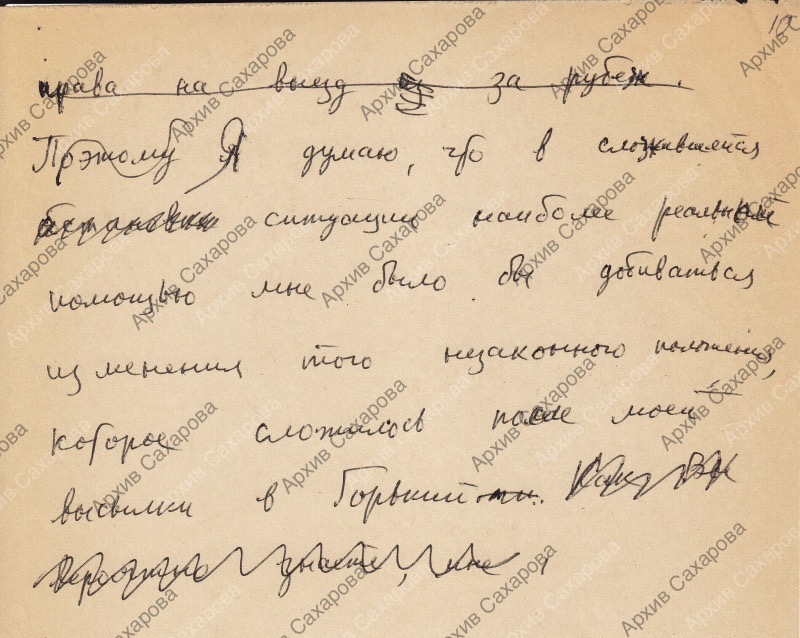 права на выезд за рубеж.
Поэтому Я думаю, что в сложившейся
обстановке ситуации наиболее реальной
помощью мне было бы добиваться
изменения того незаконного положения,
которое сложилось после моей
высылки в Горький. Как Вы
вероятно знаете, мне